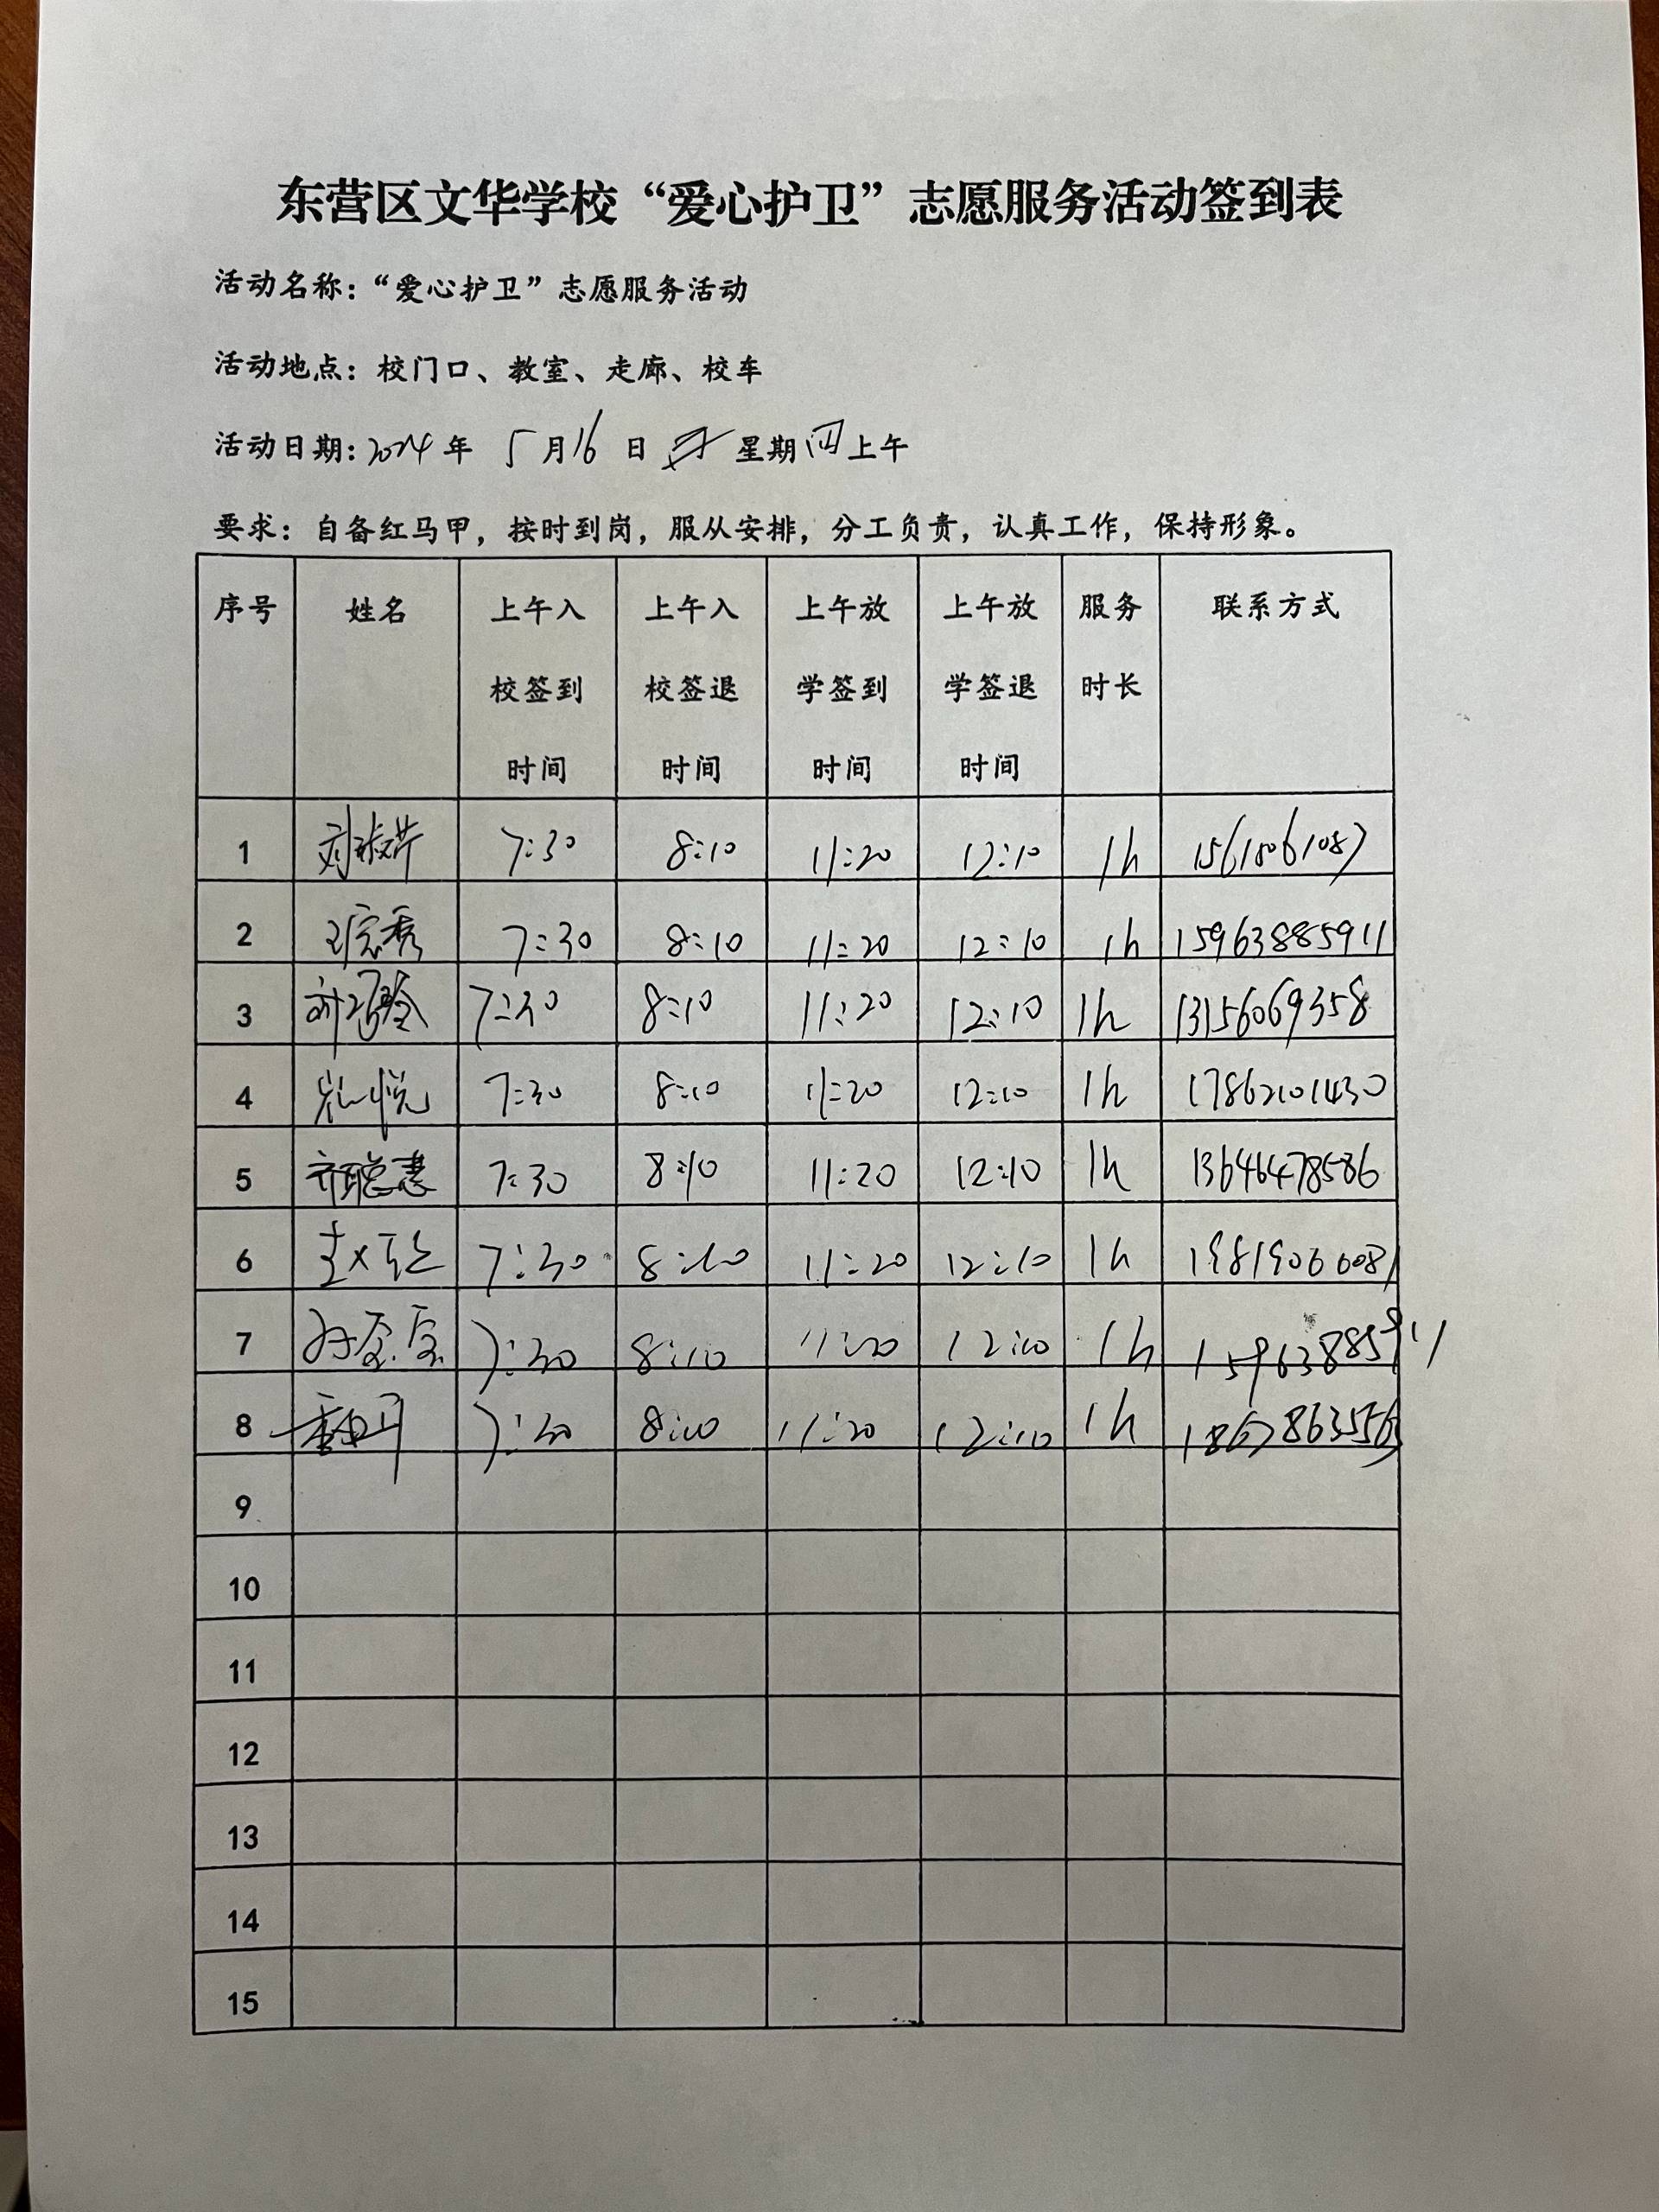 东营区文华学校“爱心护卫”志愿服务活动签到表
活动名称：“爱心护卫”志愿服务活动
活动地点：校门口、教室、走廊、校车
活动日期：2024年 5月16日 星期四上午
要求：自备红马甲，按时到岗，服从安排，分工负责，认真工作，保持形象。
序号 姓名 上午入校签到时间 上午入校签退时间 上午放学签到时间 上午放学签退时间 服务时长 联系方式
1 7:30 8:10 11:20 12:10 1h 15618061087
2 7:30 8:10 11:20 12:10 1h 15963885911
3 7:30 8:10 11:20 12:10 1h 13156069358
4 7:30 8:10 11:20 12:10 1h 17862101430
5 齐聪慧 7:30 8:10 11:20 12:10 1h 13646478586
6 7:30 8:10 11:20 12:10 1h 19819066081
7 7:30 8:10 11:20 12:10 1h 15963885911
8 7:30 8:10 11:20 12:10 1h
9
10
11
12
13
14
15